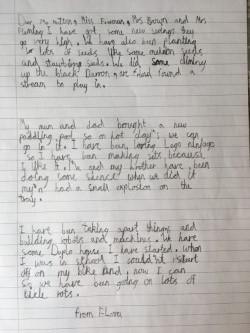 Dear Mr mittens, Miss Freeman, Mrs Brown and Mrs
Hanley I have got some new swings they
go very high. We have also ben planting
lots of seeds like some melon seeds
and strawberry seeds. We did some climing
up the black Darren, we found a
stream to play in.
My mum and dad bought a new
paddling pool so on hot days we can
go in it. I have ben loving Lego ninjago
so I have ben making sets because
I like it. I'm and my brother have been
doing some sience when we did it
my had a small explosion on the
tray.
I have ben taking apart things and
building robots and machines. We have
some Duplo house I have started. When
I was in school I couldn't start
off on my bike and now I can
so we have ben going on lots of
bicle rots.
From